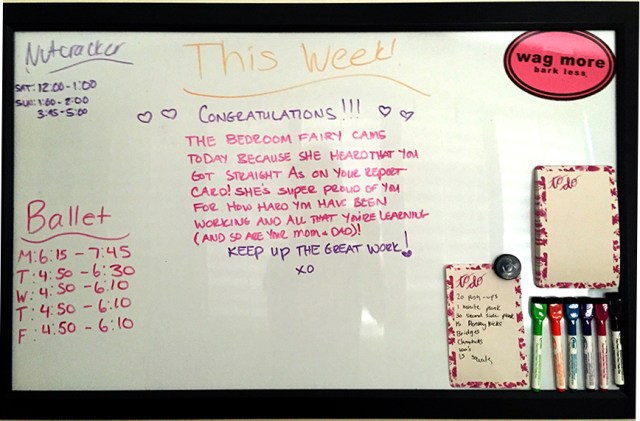 Nutcracker
SAT: 12:00-1:00
SUN: 1:00-2:00
3:45-5:00
This Week!
wag more
bark less.
CONGRATULATIONS!!!
THE BEDROOM FAIRY CAME
TODAY BECAUSE SHE HEARD THAT YOU
GOT STRAIGHT AS ON YOUR REPORT
CARD! SHE'S SUPER PROUD OF YOU
FOR HOW HARD YOU HAVE BEEN
WORKING AND ALL THAT YOU'RE LEARNING
(AND SO ARE YOUR MOM & DAD)!
KEEP UP THE GREAT WORK!
XO
Ballet
M: 6:15 - 7:45
T: 4:50 - 6:30
W: 4:50 - 6:10
T: 4:50 - 6:10
F: 4:50 - 6:10
to do
to do
20 push-ups
1 minute plank
30 second side plank
15 Donkey kicks
Bridges
15 squats